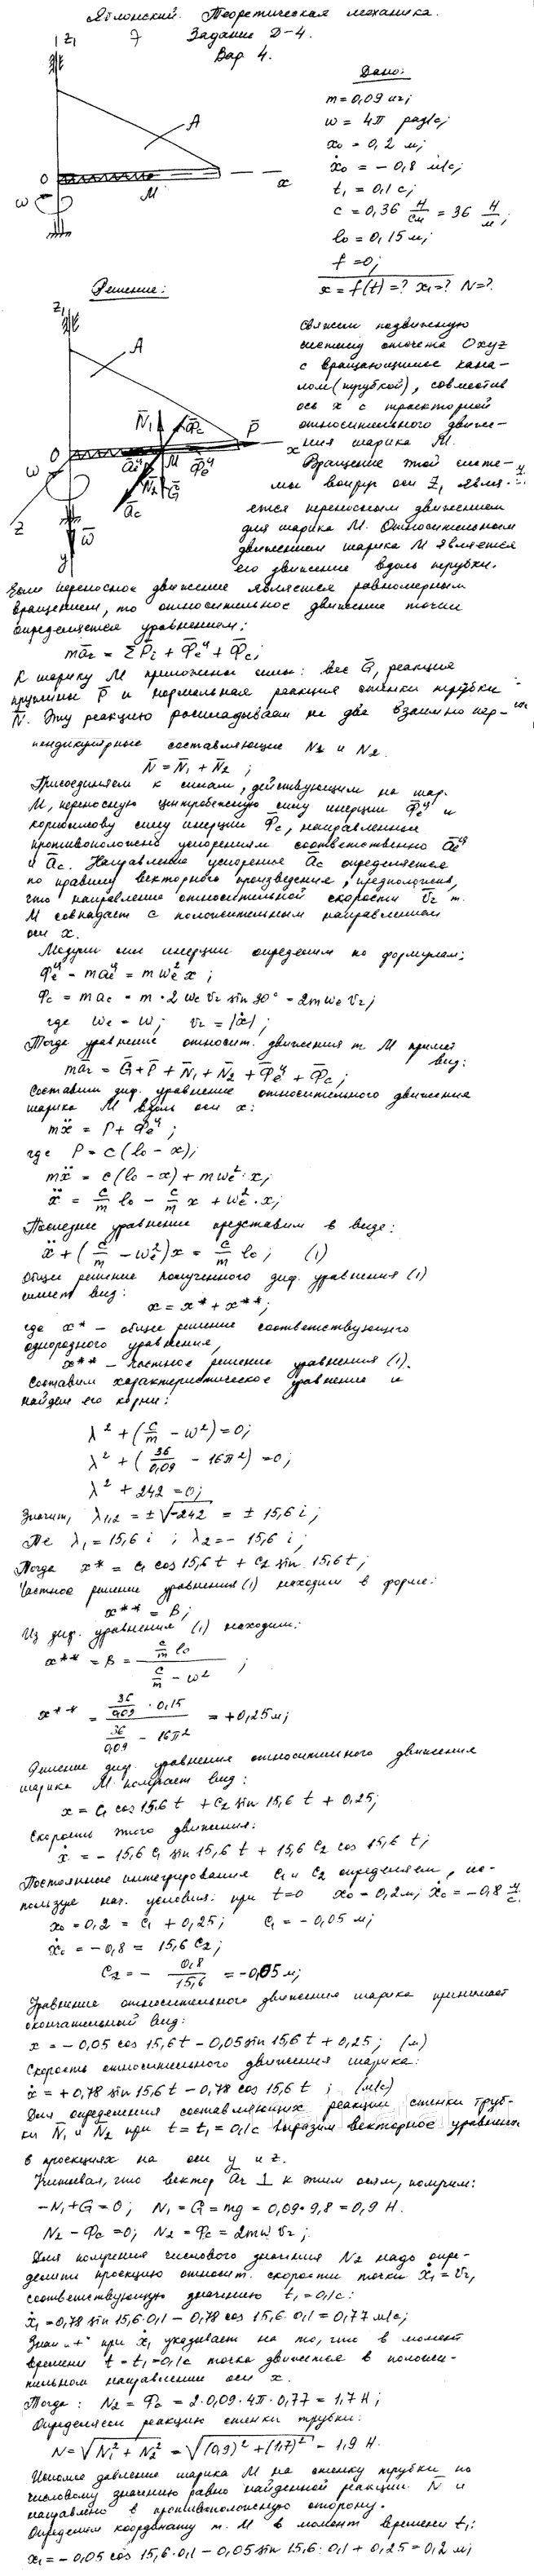 Яблонский. Теоретическая механика.
7 Задание Д-4.
Вар 4.
Дано:
m = 0,09 кг;
ω = 4π рад/с;
x₀ = 0,2 м;
ẋ₀ = - 0,8 м/с;
t₁ = 0,1 с;
c = 0,36 Н/см = 36 Н/м;
l₀ = 0,15 м;
f = 0;
x = f(t) = ? x₁ = ? N = ?
z₁
A
O M x
ω
Решение:
z₁
A
N̄₁ Φ̄c P̄
O āeц M Φ̄eц x
ω N̄₂ Ḡ
āc
z ω̄
y
Свяжем подвижную
систему отсчета Oxyz
с вращающимся кана-
лом (трубкой), совместив
ось x с траекторией
относительного движе-
ния шарика M.
Вращение этой систе-
мы вокруг оси z₁ явля-
ется переносным движением
для шарика M. Относительным
движением шарика M является
его движение вдоль трубки.
Если переносное движение является равномерным
вращением, то относительное движение точки
определяется уравнением:
mār = ΣP̄i + Φ̄eц + Φ̄c;
К шарику M приложены силы: вес Ḡ, реакция
пружины P̄ и нормальная реакция стенки трубки
N̄. Эту реакцию раскладываем на две взаимно пер-
пендикулярные составляющие N₂ и N₂.
N̄ = N̄₁ + N̄₂ ;
Присоединяем к силам, действующим на шар.
M, переносную центробежную силу инерции Φ̄eц и
кориолисову силу инерции Φ̄c, направленные
противоположно ускорениям соответственно āeц
и āc. Направление ускорения āc определяется
по правилу векторного произведения, предположив,
что направление относительной скорости v̄r т.
M совпадает с положительным направлением
оси x.
Модули сил инерции определим по формулам:
Φeц = maeц = mωe²x ;
Φc = mac = m · 2ωe vr sin 90° = 2mωe vr;
где ωe = ω; vr = |ẋ|;
Тогда уравнение относит. движения т. M примет вид:
mār = Ḡ + P̄ + N̄₁ + N̄₂ + Φ̄eц + Φ̄c;
Составим диф. уравнение относительного движения
шарика M вдоль оси x:
mẍ = P + Φeц ;
где P = c(l₀ - x);
mẍ = c(l₀ - x) + mωe² · x;
ẍ = c/m l₀ - c/m x + ωe² · x;
Последнее уравнение представим в виде:
ẍ + (c/m - ωe²)x = c/m l₀; (1)
Общее решение полученного диф. уравнения (1)
имеет вид:
x = x* + x**;
где x* - общее решение соответствующего
однородного уравнения,
x** - частное решение уравнения (1).
Составим характеристическое уравнение и
найдем его корни:
λ² + (c/m - ω²) = 0;
λ² + (36/0,09 - 16π²) = 0;
λ² + 242 = 0;
Значит, λ₁,₂ = ±√-242 = ± 15,6 i;
Те λ₁ = 15,6 i ; λ₂ = - 15,6 i;
Тогда x* = C₁ cos 15,6 t + C₂ sin 15,6 t;
Частное решение уравнения (1) находим в форме:
x** = B;
Из диф. уравнения (1) находим:
x** = B = (c/m l₀)/(c/m - ω²) ;
x** = (36/0,09 · 0,15)/(36/0,09 - 16π²) = +0,25 м;
Решение диф. уравнения относительного движения
шарика M получает вид:
x = C₁ cos 15,6 t + C₂ sin 15,6 t + 0,25;
Скорость этого движения:
ẋ = - 15,6 C₁ sin 15,6 t + 15,6 C₂ cos 15,6 t;
Постоянные интегрирования C₁ и C₂ определяем, ис-
пользуя нач. условия: при t=0 x₀ = 0,2 м; ẋ₀ = -0,8 м/с.
x₀ = 0,2 = C₁ + 0,25; C₁ = - 0,05 м;
ẋ₀ = -0,8 = 15,6 C₂;
C₂ = - 0,8/15,6 = -0,05 м;
Уравнение относительного движения шарика принимает
окончательный вид:
x = - 0,05 cos 15,6 t - 0,05 sin 15,6 t + 0,25; (м)
Скорость относительного движения шарика:
ẋ = +0,78 sin 15,6 t - 0,78 cos 15,6 t ; (м/с)
Для определения составляющих реакции стенки труб-
ки N̄₁ и N̄₂ при t = t₁ = 0,1 с выразим векторное уравнение
в проекциях на оси y и z.
Учитывая, что вектор ār ⊥ к этим осям, получим:
-N₁ + G = 0; N₁ = G = mg = 0,09 · 9,8 = 0,9 Н.
N₂ - Φc = 0; N₂ = Φc = 2mω vr;
Для получения числового значения N₂ надо опре-
делить проекцию относит. скорости точки ẋ₁ = vr,
соответствующую значению t₁ = 0,1 с:
ẋ₁ = 0,78 sin 15,6 · 0,1 - 0,78 cos 15,6 · 0,1 = 0,77 м/с;
Знак „+" при ẋ₁ указывает на то, что в момент
времени t = t₁ = 0,1 с точка движется в положи-
тельном направлении оси x.
Тогда: N₂ = Φc = 2 · 0,09 · 4π · 0,77 = 1,7 Н;
Определяем реакцию стенки трубки:
N = √N₁² + N₂² = √(0,9)² + (1,7)² = 1,9 Н.
Искомое давление шарика M на стенку трубки по
числовому значению равно найденной реакции N̄ и
направлено в противоположную сторону.
Определим координату т. M в момент времени t₁:
x₁ = - 0,05 cos 15,6 · 0,1 - 0,05 sin 15,6 · 0,1 + 0,25 = 0,2 м;